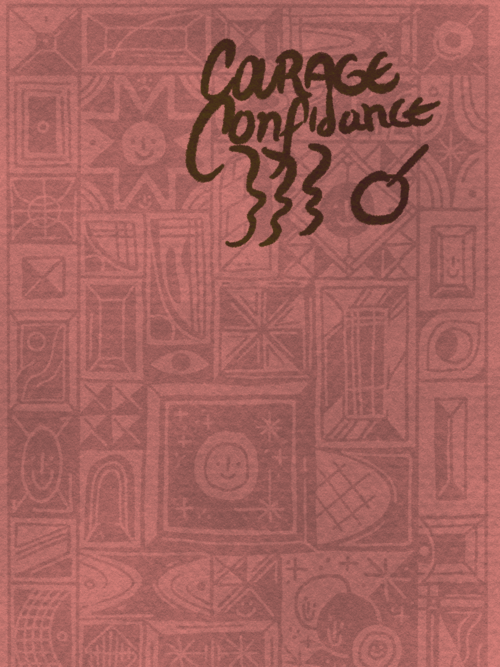 CoURAGE
Confidance